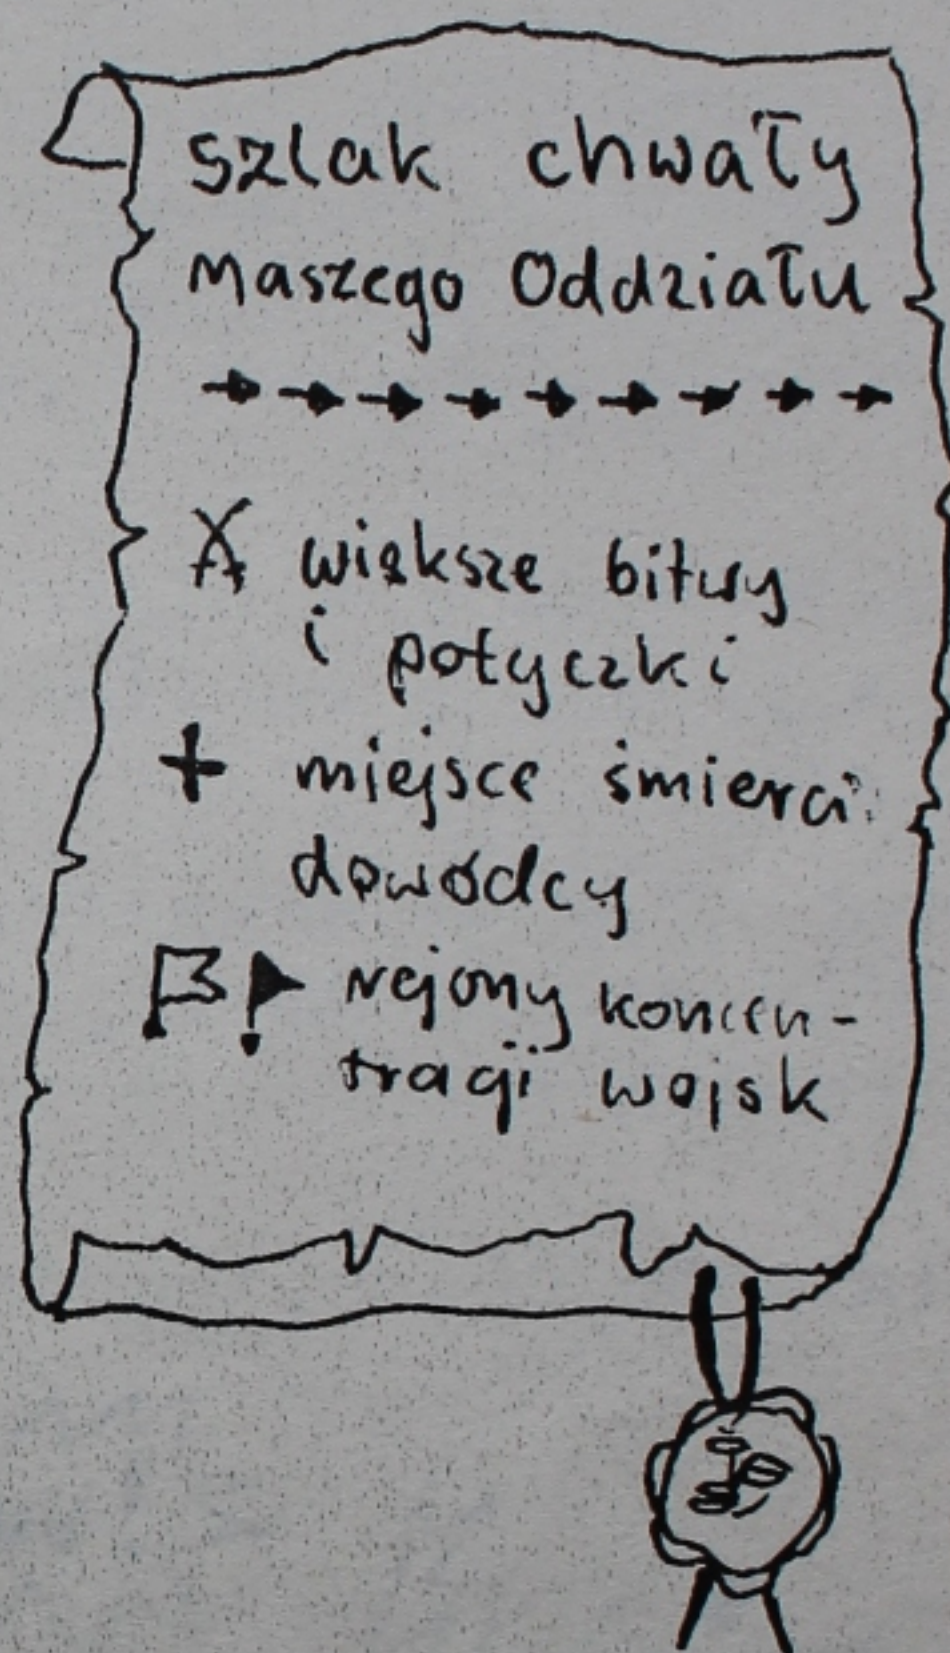 szlak chwały
naszego Oddziału
większe bitwy
i potyczki
miejsce śmierci
dowódcy
rejony koncen-
tracji wojsk